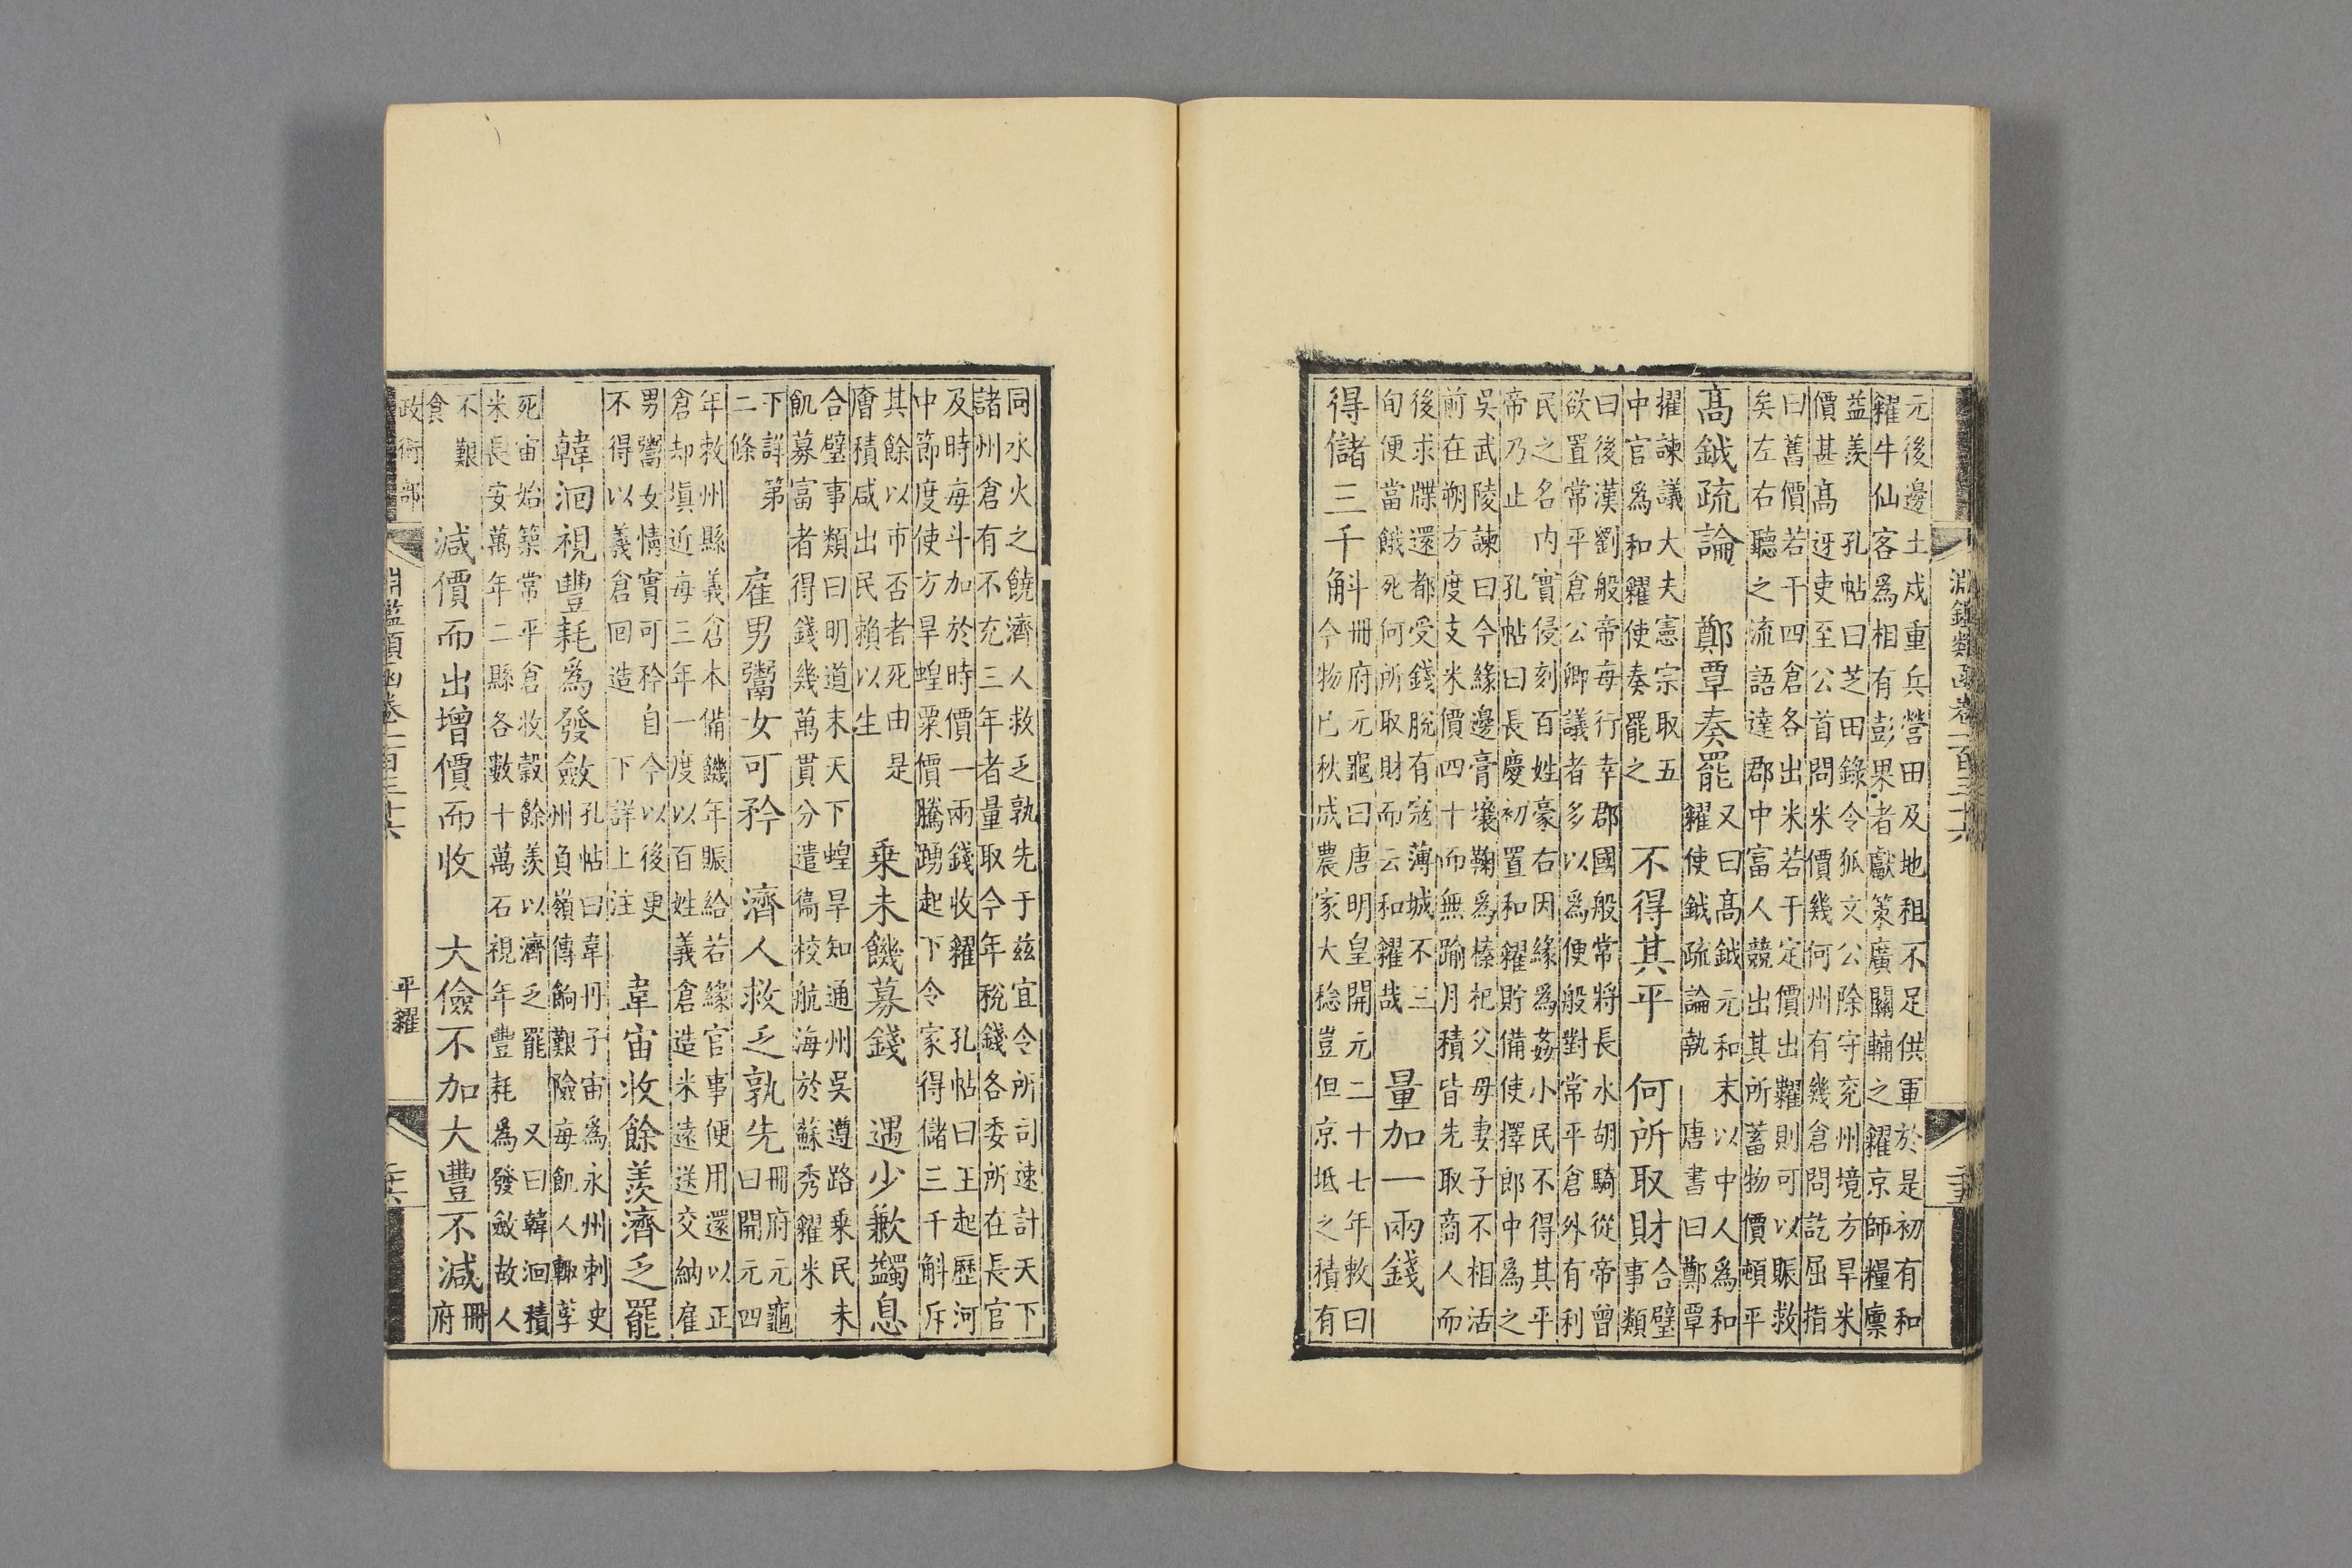 淵鑑類函卷一百三十六 二十五
元後邊土戍重兵營田及地租不足供軍於是初有和
糴牛仙客為相有彭果者獻策廣關輔之糴京師糧廪
益羨 孔帖曰芝田錄令狐文公除守兖州境方旱米
價甚髙迓吏至公首問米價幾何州有幾倉問訖屈指
曰舊價若干四倉各出米若干定價出糶則可以賑救
矣左右聽之流語達郡中富人競出其所蓄物價頓平
髙鉞疏論 鄭覃奏罷 又曰髙鉞元和末以中人為和
糴使鉞疏論執 唐書曰鄭覃
擢諫議大夫憲宗取五
中官為和糴使奏罷之 不得其平 何所取財 合璧
事類
曰後漢劉般帝每行幸郡國般常將長水胡騎從帝曾
欲置常平倉公卿議者多以為便般對常平倉外有利
民之名内實侵刻百姓豪右因緣為姦小民不得其平
帝乃止 孔帖曰長慶初置和糴貯備使擇郎中為之
吳武陵諫曰今緣邊膏壤鞠為榛杞父母妻子不相活
前在朔方度支米價四十而無踰月積皆先取商人而
後求牒還都受錢脫有寇薄城不三
旬便當餓死何所取財而云和糴哉 量加一兩錢
得儲三千斛 冊府元龜曰唐明皇開元二十七年敕曰
今物已秋成農家大稔豈但京坻之積有
同水火之饒濟人救乏孰先于兹宜令所司速計天下
諸州倉有不充三年者量取今年稅錢各委所在長官
及時每斗加於時價一兩錢收糴 孔帖曰王起歷河
中節度使方旱蝗粟價騰踴起下令家得儲三千斛斥
其餘以市否者死由是
廥積咸出民賴以生 乗未饑募錢 遇少歉蠲息
合璧事類曰明道末天下蝗旱知通州吳遵路乗民未
飢募富者得錢幾萬貫分遣衙校航海於蘇秀糴米
下詳第
二條 雇男鬻女可矜 濟人救乏孰先 冊府元龜
曰開元四
年敕州縣義倉本備饑年賑給若緣官事便用還以正
倉却填近每三年一度以百姓義倉造米遠送交納雇
男鬻女情實可矜自今以後更
不得以義倉回造 下詳上注 韋宙收餘羨濟乏罷
韓洄視豐耗為發斂 孔帖曰韋丹子宙為永州刺史
州負嶺傳餉艱險每飢人輙莩
死宙始築常平倉收穀餘羨以濟乏罷 又曰韓洄積
米長安萬年二縣各數十萬石視年豐耗為發斂故人
不艱
食 減價而出增價而收 大儉不加大豐不減 冊
府
政術部 淵鑑類函卷一百三十六 平糴 二十六